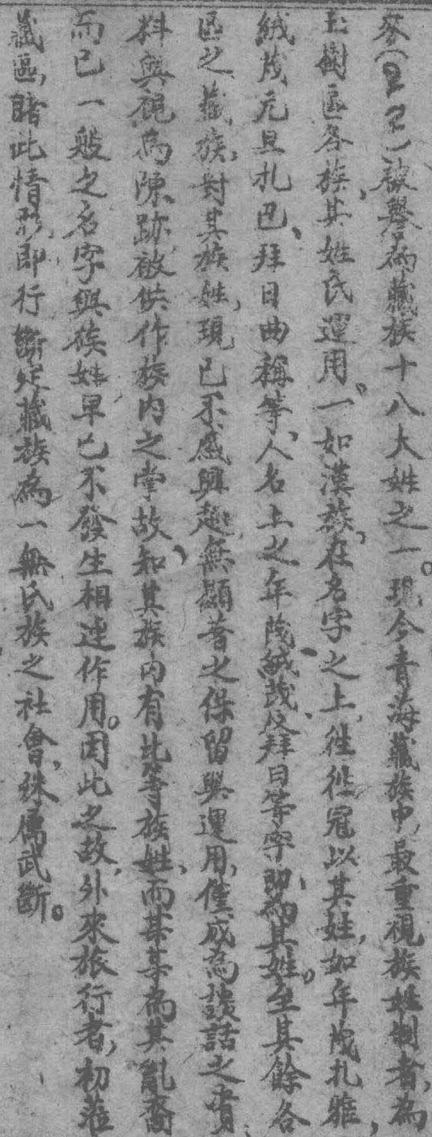 麥()被譽為藏族十八大姓之一。現今青海藏族中,最重視族姓制者,為
玉樹區各族,其姓氏運用。一如漢族,在名字之上,往往冠以其姓,如年茂扎雅,
絨茂元旦扎巴、拜日曲稱等,人名上之年茂絨茂及拜日等字,即為其姓。至其餘各
區之藏族,對其族姓,現已不感興趣,無顯著之保留與運用,僅成為談話之資
料與視為陳跡,被供作族內之掌故,知其族內有此等族姓,而某某為其亂裔
而已一般之名字與族姓早已不發生相連作用。因此之故,外來旅行者,初蒞
藏區,睹此情形,即行斷定藏族為一無氏族之社會,殊屬武斷。